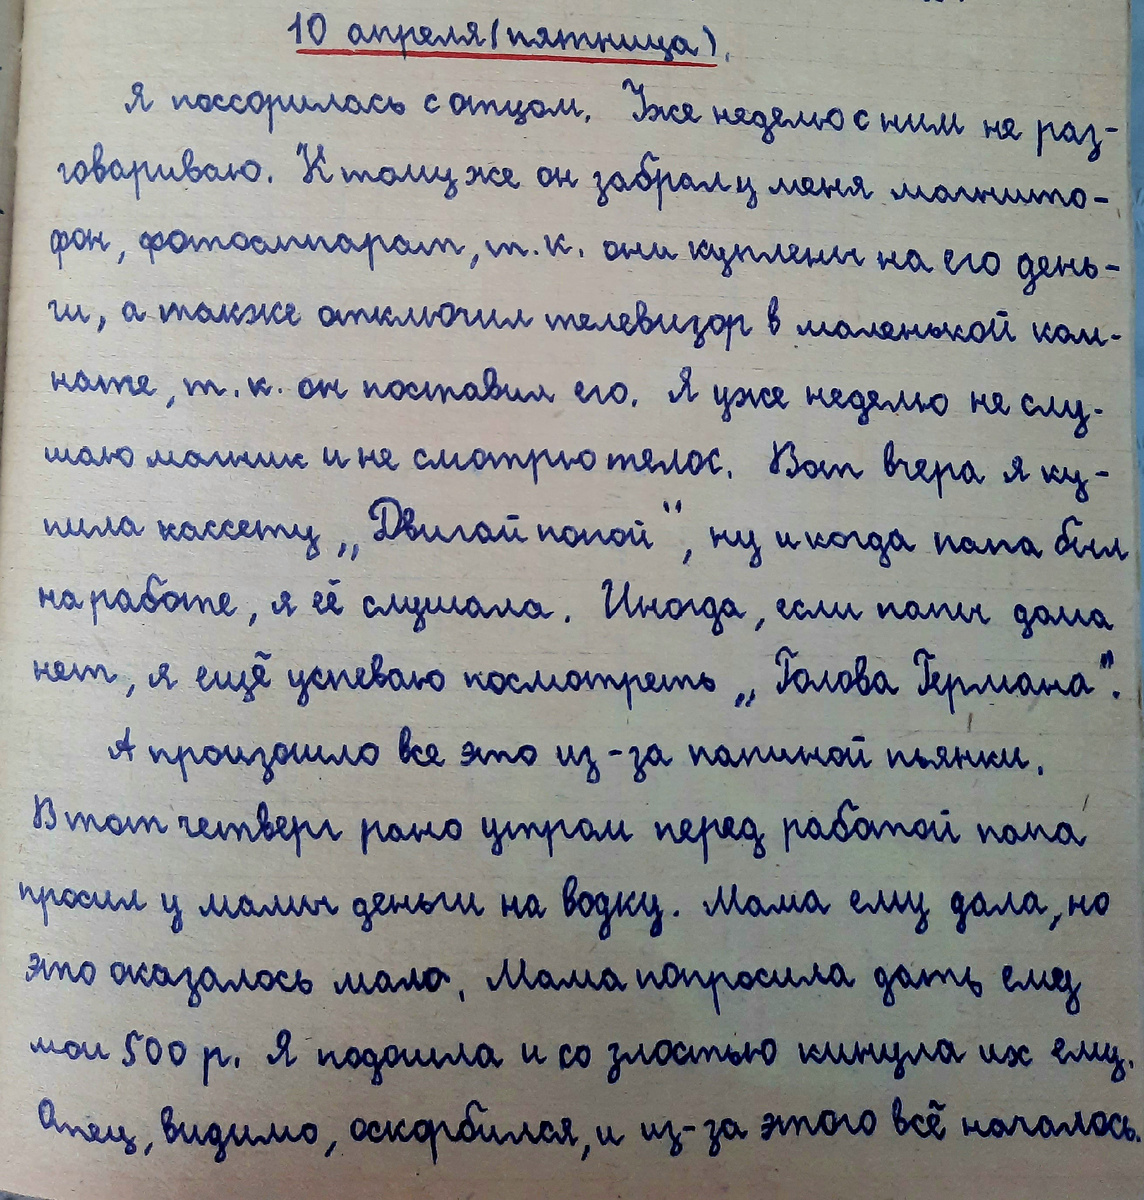 10 апреля (пятница).
Я поссорилась с отцом. Уже неделю с ним не раз-
говариваю. К тому же он забрал у меня магнито-
фон, фотоаппарат, т.к. они куплены на его день-
ги, а также отключил телевизор в маленькой ком-
нате, т.к. он поставил его. Я уже неделю не слу-
шаю магник и не смотрю телос. Вот вчера я ку-
пила кассету „Двигай попой", ну и когда папа был
на работе, я её слушала. Иногда, если папы дома
нет, я ещё успеваю посмотреть „Голова Германа".
А произошло все это из-за папиной пьянки.
В тот четверг рано утром перед работой папа
просил у мамы деньги на водку. Мама ему дала, но
это оказалось мало. Мама попросила дать ему
мои 500 р. Я подошла и со злостью кинула их ему.
Отец, видимо, оскорбился, и из-за этого всё началось.